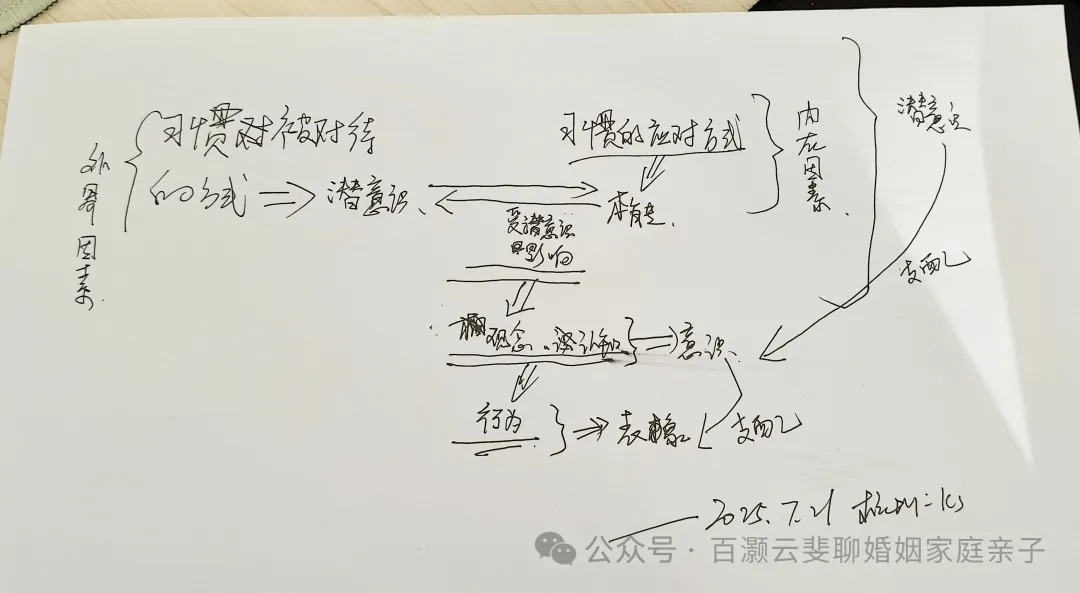 外界因素.
习惯对被对待
的方式 ⇒ 潜意识、
习惯的应对方式
本能.
内在因素.
潜意识
支配
受潜意识
影响
观念、认知 ⇒ 意识、
行为 ⇒ 表象
支配
2025.7.21
公众号 · 百灏云斐聊婚姻家庭亲子